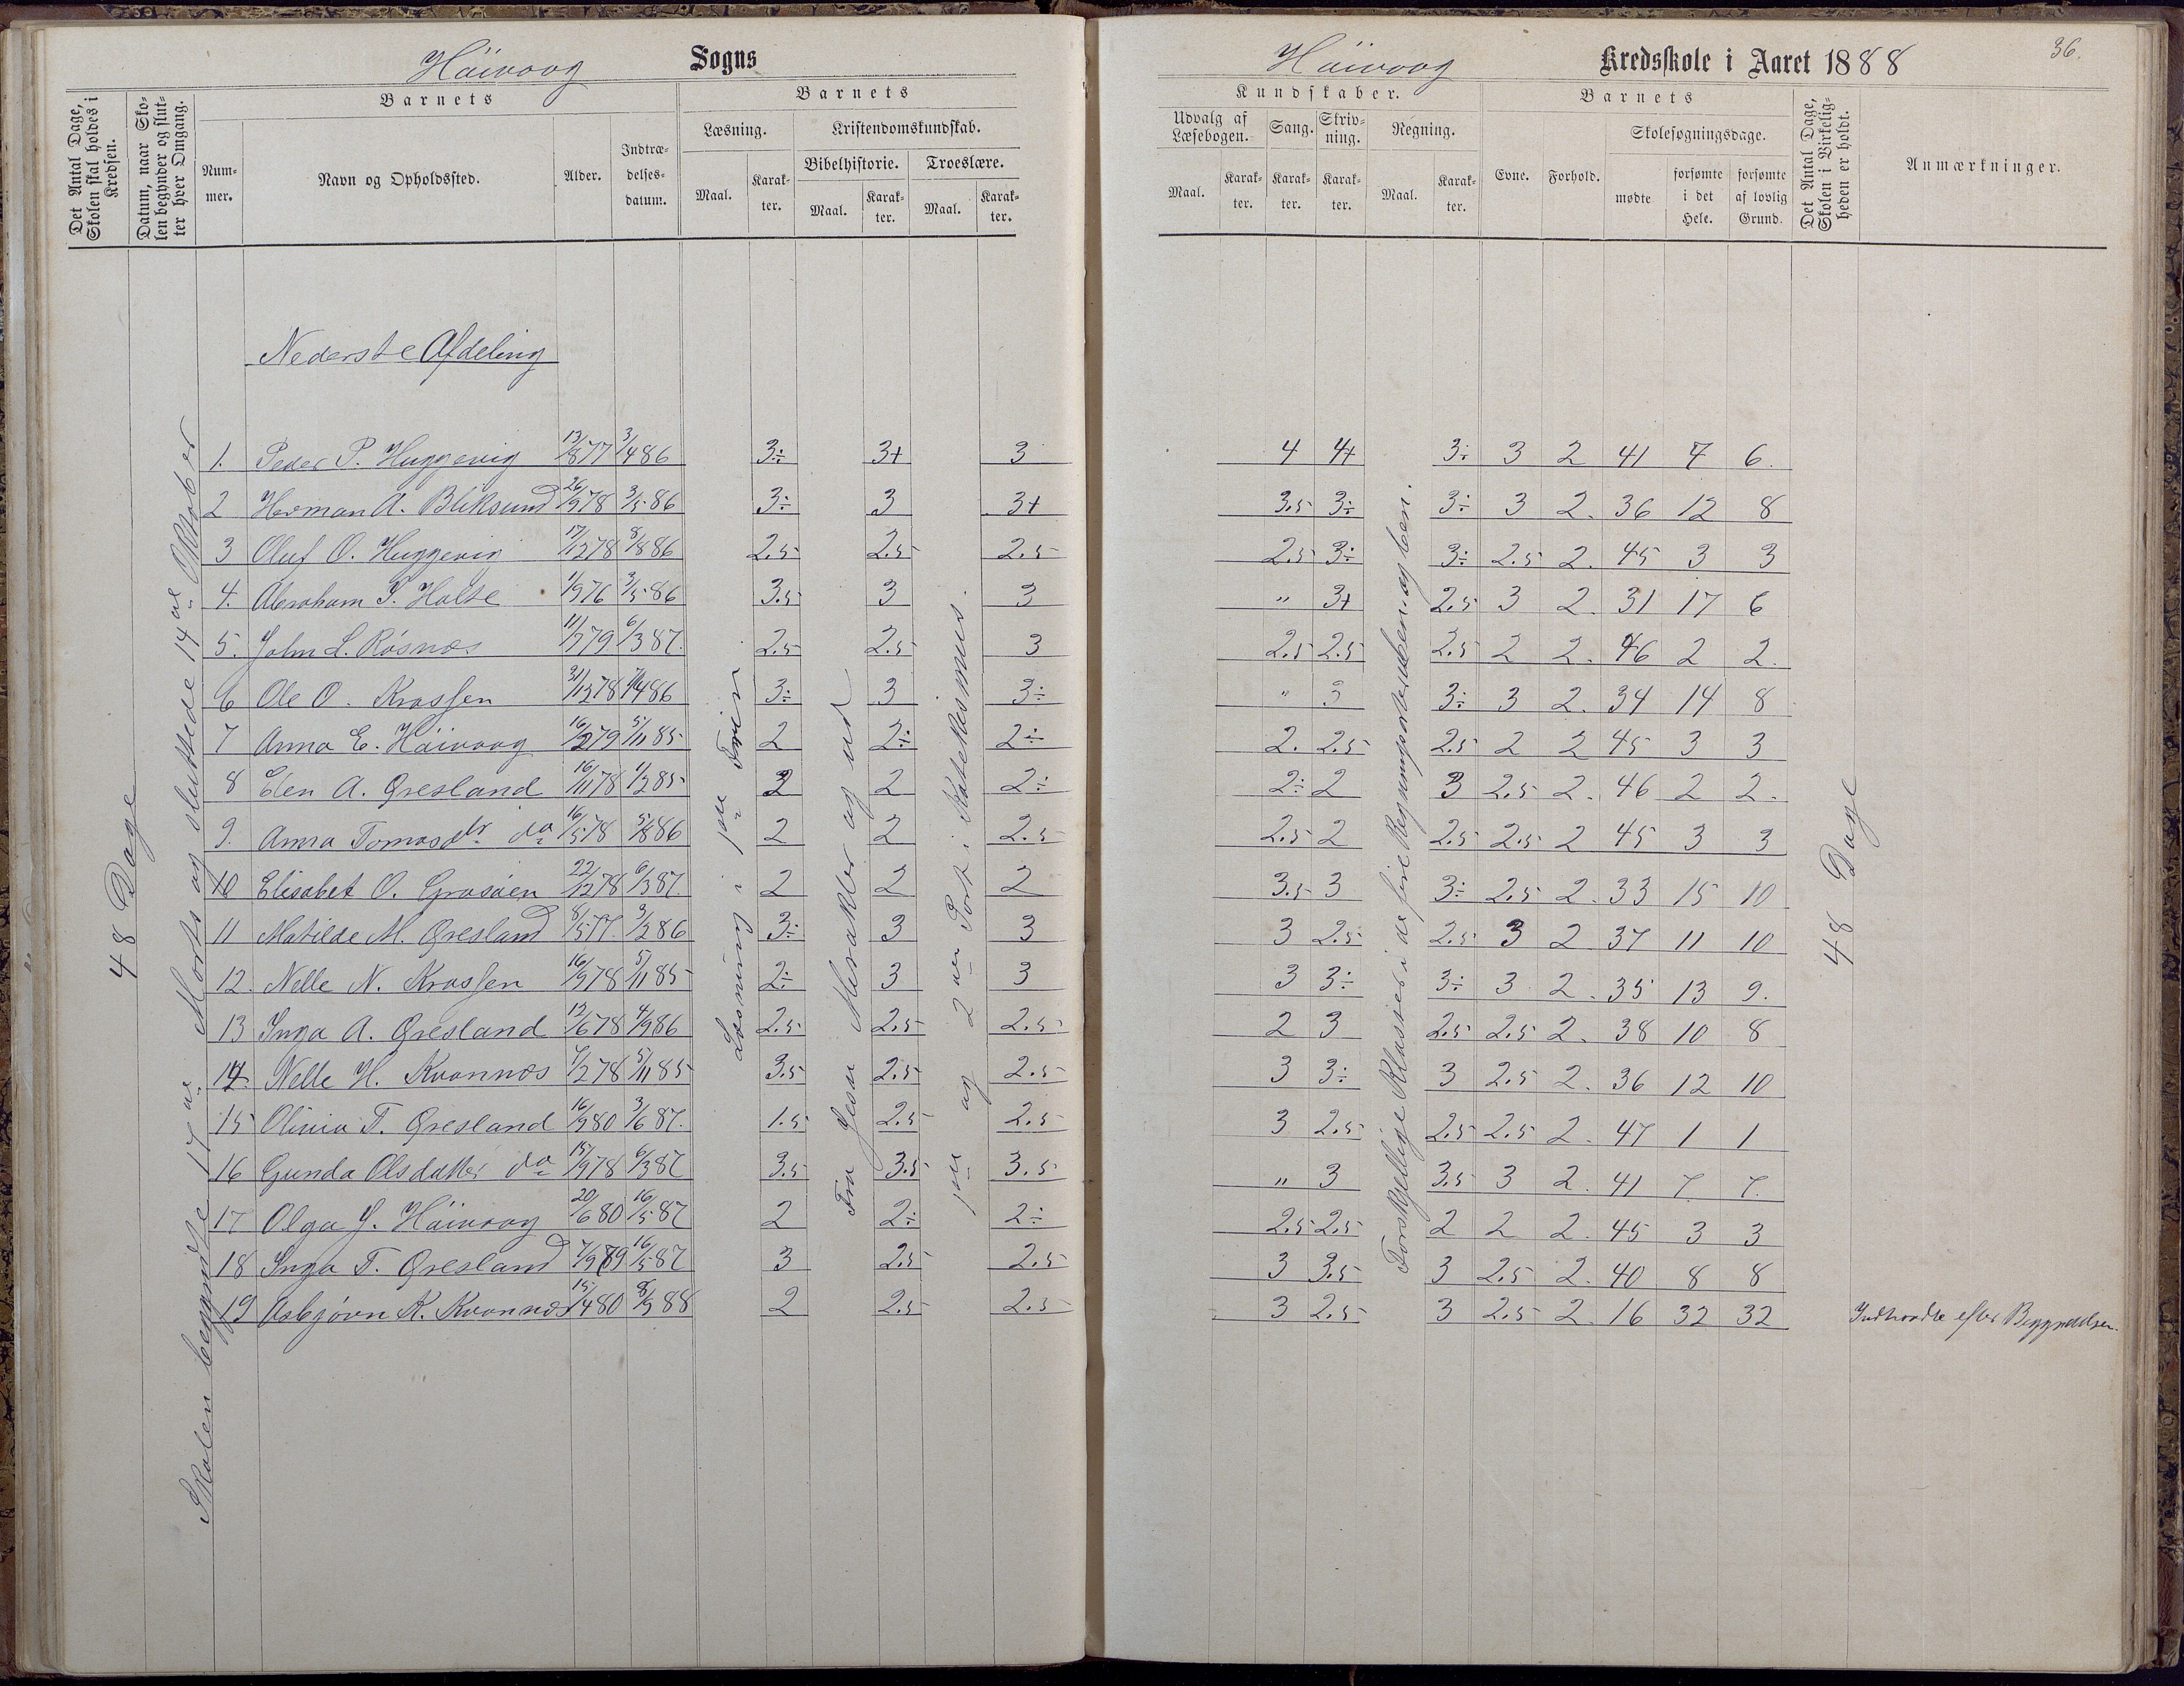 Höivaag Sogns
Höivaag Kredsskole i Aaret 1888
36.
Det Antal Dage, Skolen skal holdes i Kredsen.
Datum, naar Skolen begynder og slutter hver Omgang.
Barnets
Nummer.
Navn og Opholdssted.
Alder.
Indtrædelsesdatum.
Barnets
Læsning.
Maal.
Karakter.
Kristendomskundskab.
Bibelhistorie.
Maal.
Karakter.
Troeslære.
Maal.
Karakter.
Kundskaber.
Udvalg af Læsebogen.
Maal.
Karakter.
Sang.
Karakter.
Skrivning.
Karakter.
Regning.
Maal.
Karakter.
Barnets
Evne.
Forhold.
Skolesøgningsdage.
mødte
forsømte i det Hele.
forsømte af lovlig Grund.
Det Antal Dage, Skolen i Virkeligheden er holdt.
Anmærkninger.
48 Dage
Skolen begyndte 17de Marts og sluttede 14de Oktober
Nederste Afdeling
Læsning i
Fra Jesu Mirakler og ud
og 2den Part i Katekismus.
Forskjellige Klasser i de fire Regningsarter
48 Dage
1. Peder P. Huggevig 13/8 77 3/4 86 3÷ 3+ 3 4 4+ 3÷ 3 2 41 7 6.
2 Herman A. Bliksund 26/9 78 3/5 86 3÷ 3 3+ 3.5 3÷ 3÷ 3 2. 36 12 8
3 Oluf O. Huggevig 17/12 78 5/8 86 2.5 2.5 2.5 2.5 3÷ 3÷ 2.5 2. 45 3 3
4. Abraham S. Halte 1/9 76 3/5 86 3.5 3 3 " 3+ 2.5 3 2. 31 17 6
5. John L. Rösnæs 11/2 79 6/3 87. 2.5 2.5 3 2.5 2.5 2.5 2 2. 46 2 2.
6 Ole O. Krossen 31/12 78 4/4 86 3÷ 3 3÷ " 3 3÷ 3 2. 34 14 8
7 Anna E. Höivaag 16/2 79 5/11 85 2 2÷ 2÷ 2. 2.5 2.5 2 2 45 3 3
8 Elen A. Qresland 16/11 78 1/2 85 2 2 2÷ 2÷ 2 3 2.5 2. 46 2 2.
9. Anna Tomasdtr do 16/5 78 5/8 86 2 2 2.5 2.5 2 2.5 2.5 2 45 3 3
10 Elisabet O. Grasåen 22/12 78 6/3 87. 2 2 2 3.5 3 3÷ 2.5 2. 33 15 10
11 Matilde M. Qresland 8/5 77. 3/2 86 3÷ 3 3 3 2.5 2.5 3 2 37 11 10
12. Nelle N. Krossen 16/9 78 5/11 85 2÷ 3 3 3 3÷ 3÷ 3 2. 35 13 9.
13 Inga A. Qresland 12/6 78 4/9 86 2.5 2.5 2.5 2 3 2.5 2.5 2. 38 10 8
14. Nelle H. Kvannes 7/2 78 5/11 85 3.5 2.5 2.5 3 3÷ 3 2.5 2. 36 12 10
15 Olivia T. Qresland 16/9 80 3/6 87. 1.5 2.5 2.5 3 2.5 2.5 2.5 2. 47 1 1
16 Gunda Olsdatter do 15/9 78 6/3 87 3.5 3.5 3.5 " 3 3.5 3 2. 41 7. 7.
17 Olga J. Höivaag 20/6 80 16/5 87 2 2÷ 2÷ 2.5 2.5 2 2 2. 45 3 3
18 Inga T. Qresland 7/9 79 16/5 87 3 2.5 2.5 3 3.5 3 2.5 2. 40 8 8
19 Asbjörn K. Kvannes 15/4 80 8/9 88 2 2.5 2.5 3 2.5 3 2.5 2. 16 32 32 Indtraadte efter Begyndelsen.